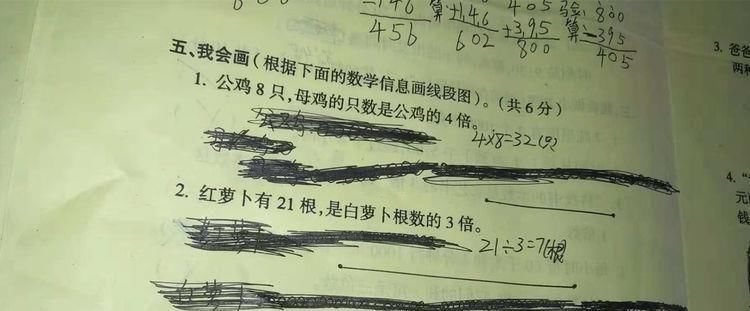 -146
算:
+146
405
验
800
456
602
+395
算:
-395
800
405
五、我会画(根据下面的数学信息画线段图)。(共6分)
1. 公鸡8只,母鸡的只数是公鸡的4倍。
4×8=32(只)
2. 红萝卜有21根,是白萝卜根数的3倍。
21÷3=7(根
白萝卜
3. 爸爸
两种
4.
元
钱